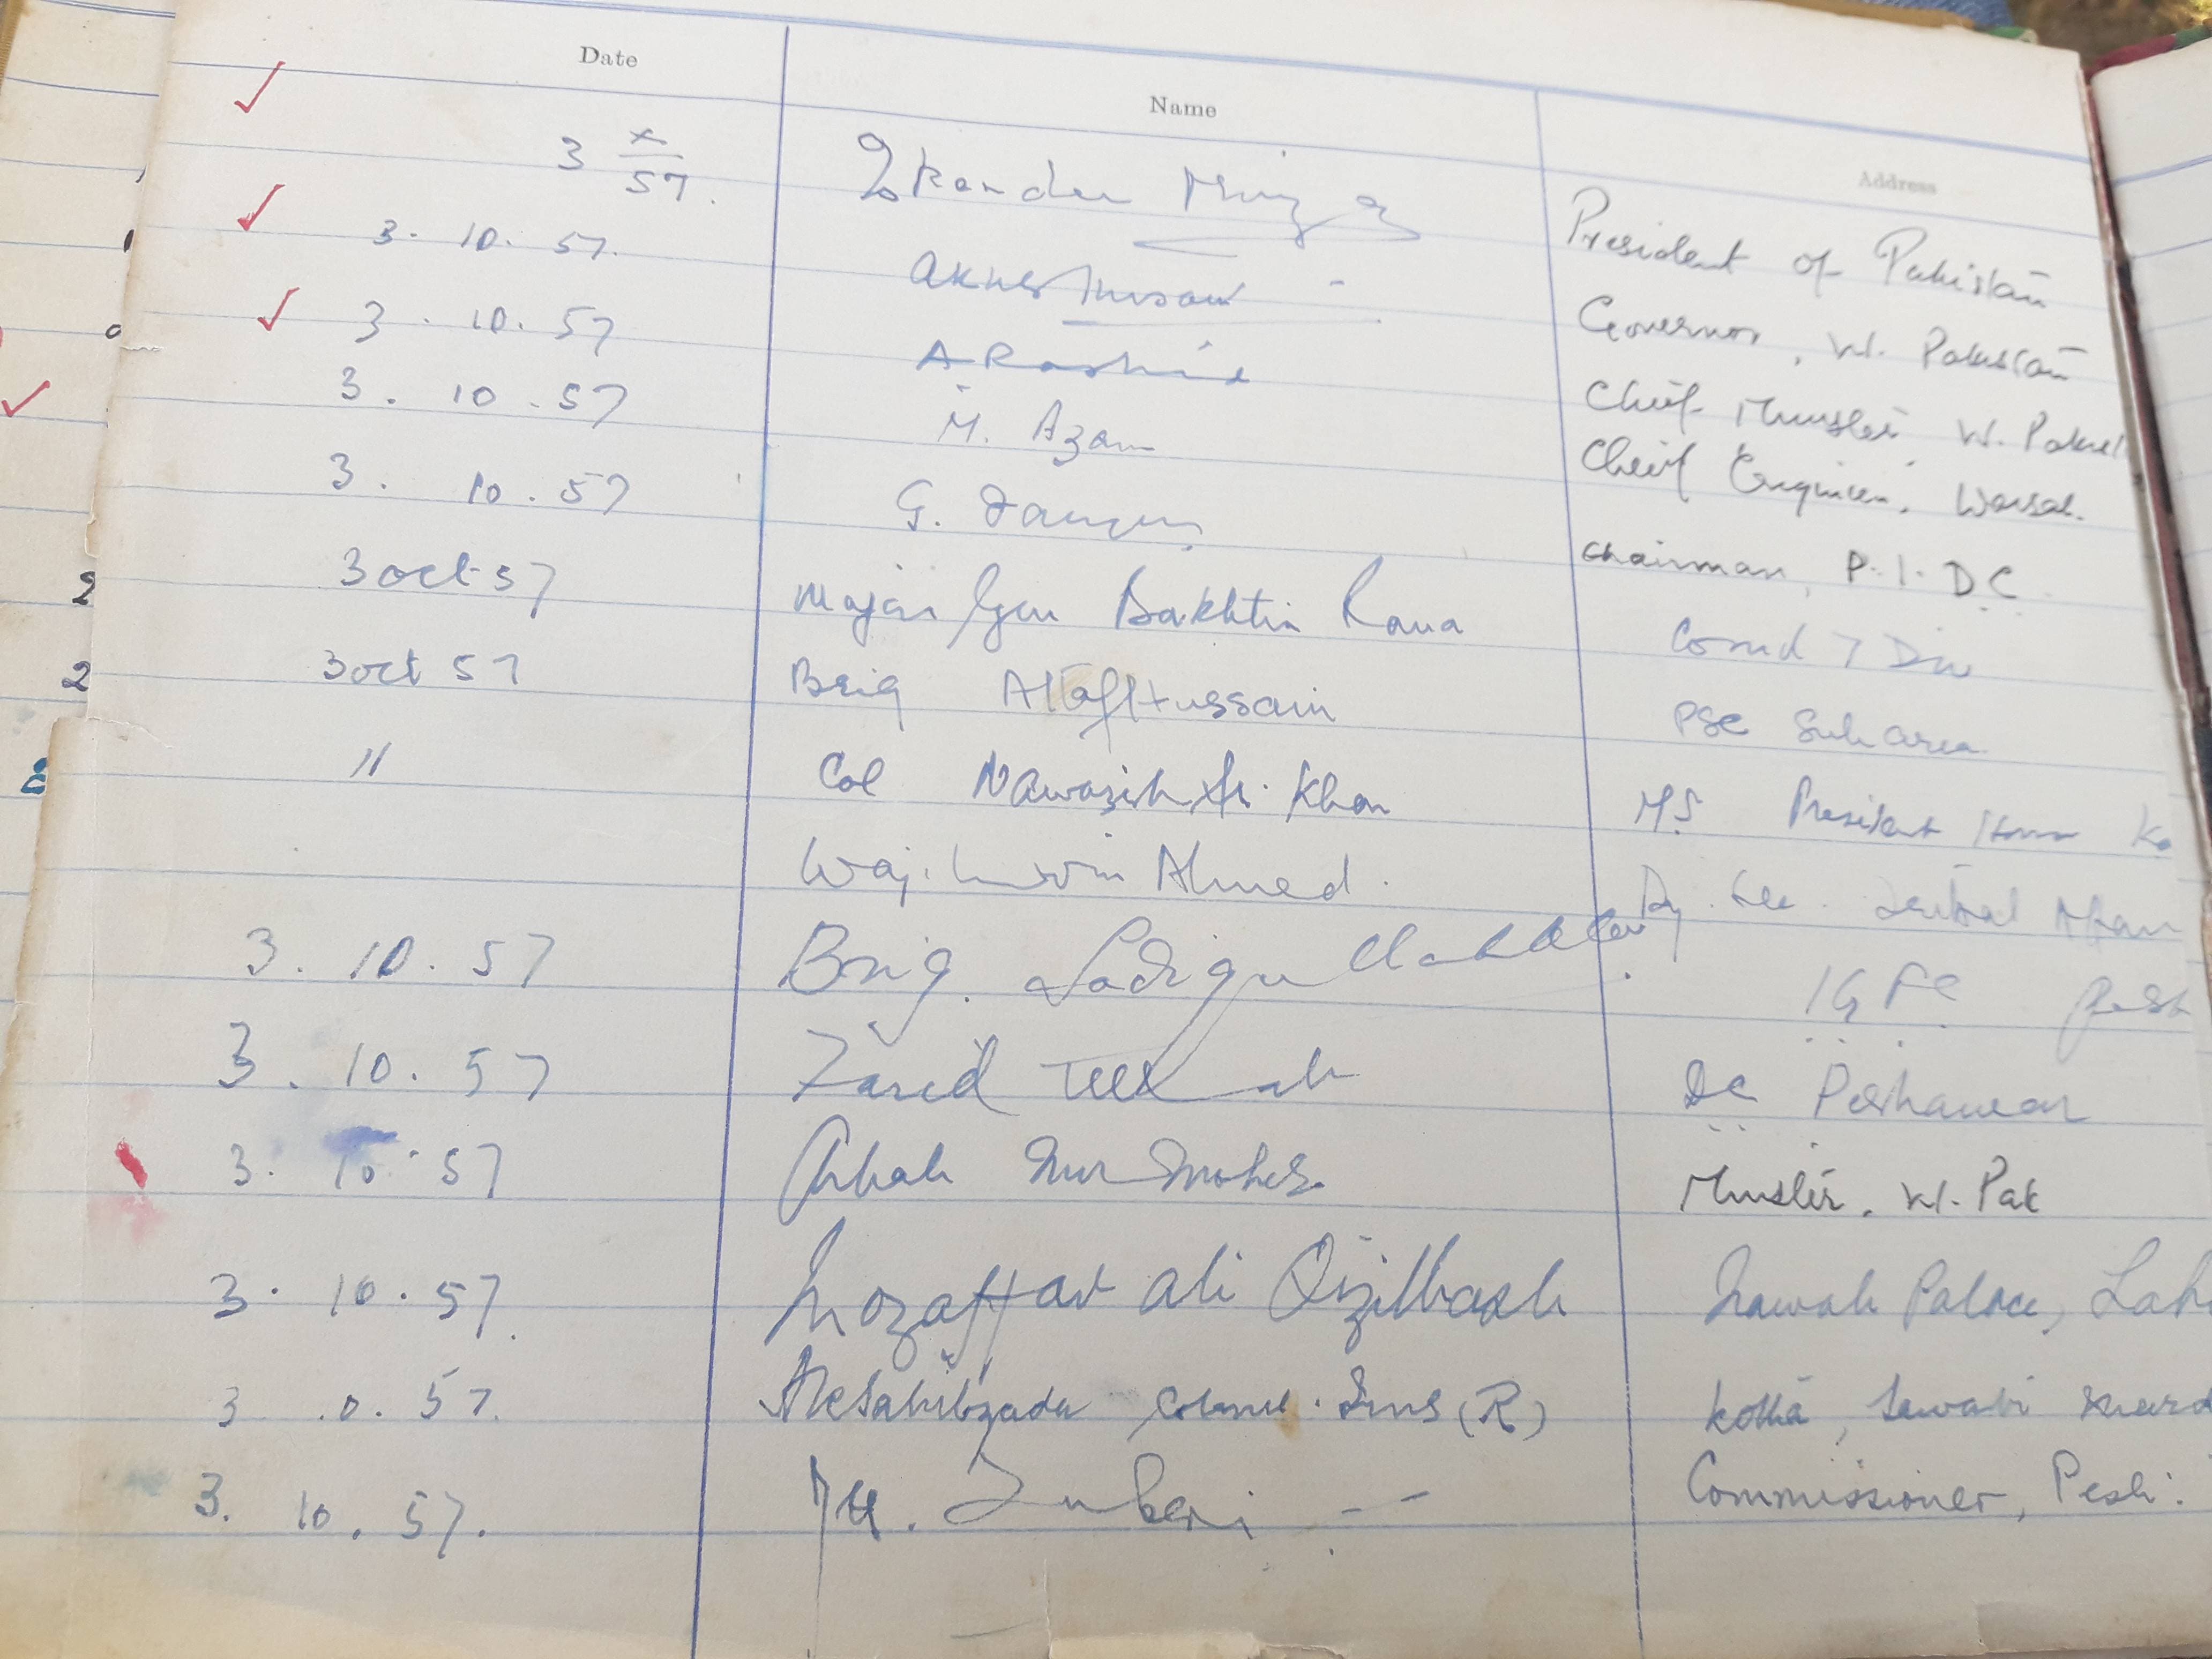 Date Name Address
3 x/57. Iskander Mirza President of Pakistan
3. 10. 57. Akhter Husain Governor, W. Pakistan
3. 10. 57 A Rashid Chief Minister W. Pakist
3. 10. 57 M. Azam Chief Engineer, Warsak.
3. 10. 57 G. Faruque Chairman, P.I.D.C.
3 Oct 57 Major Gen Bakhtia Rana Comd 7 Div
3 Oct 57 Brig Altaf Hussain PSC Sub area
" Col Nawazish Ali Khan MS President House Ka
Wajihuddin Ahmed. Dy. Sec.
3. 10. 57 Brig. Sadiqullah Khan IGFC Pesh
3. 10. 57 DC Peshawar
3. 10. 57 Arbab Nur Mohd. Minister, W. Pak
3. 10. 57. Mozaffar Ali Qizilbash Nawab Palace, Laho
3 .0. 57. Sahibzada Colonel (R) Kotha, Sawabi Mard
3. 10. 57. Zuberi -- Commissioner, Pesh: